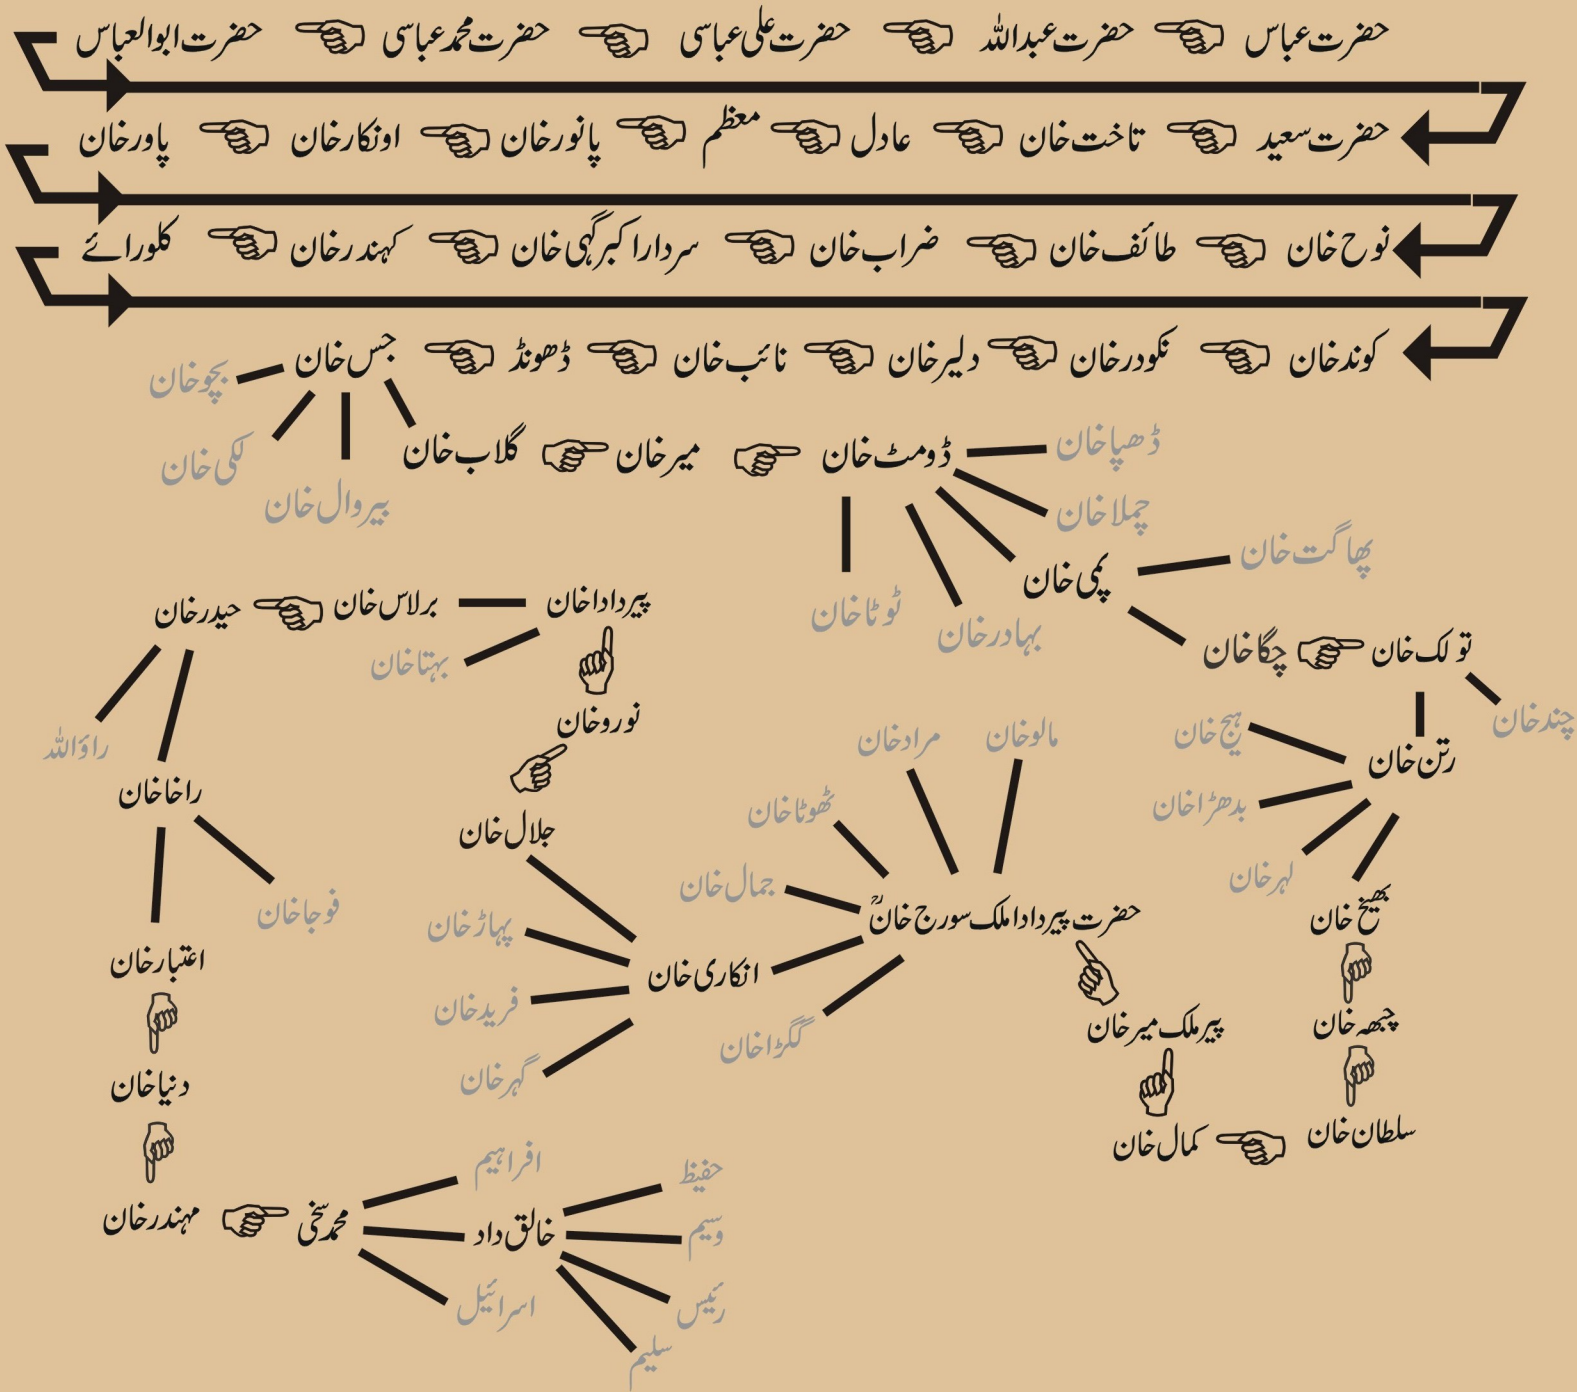 حضرت عباس حضرت عبداللہ حضرت علی عباسی حضرت محمد عباسی حضرت ابوالعباس
حضرت سعید تاخت خان عادل معظم پانورخان اونکارخان پاورخان
نوح خان طائف خان ضراب خان سردار اکبر گہی خان کہندرخان کلورائے
کوندخان نکودرخان دلیرخان نائب خان ڈھونڈ جس خان
بچوخان
لکی خان
بیروال خان
گلاب خان میرخان ڈومٹ خان
ڈھپاخان
چملاخان
پمی خان
بہادرخان
ٹوٹاخان
پھاگت خان
چگاخان تولک خان
چندخان
رتن خان
ہیج خان
بدھڑاخان
لہرخان
بھیخ خان
چبھہ خان
سلطان خان
کمال خان
پیر ملک میرخان
حضرت پیردادا ملک سورج خانؒ
مالوخان
مرادخان
ٹھوٹاخان
جمال خان
گگڑاخان
انکاری خان
پہاڑخان
فریدخان
گہرخان
جلال خان
نوروخان
پیردادا خان
بہتاخان
برلاس خان
حیدرخان
راؤاللہ
راخاخان
فوجاخان
اعتبارخان
دنیاخان
مہندرخان
محمد سخی
افراہیم
خالق داد
اسرائیل
حفیظ
وسیم
رئیس
سلیم